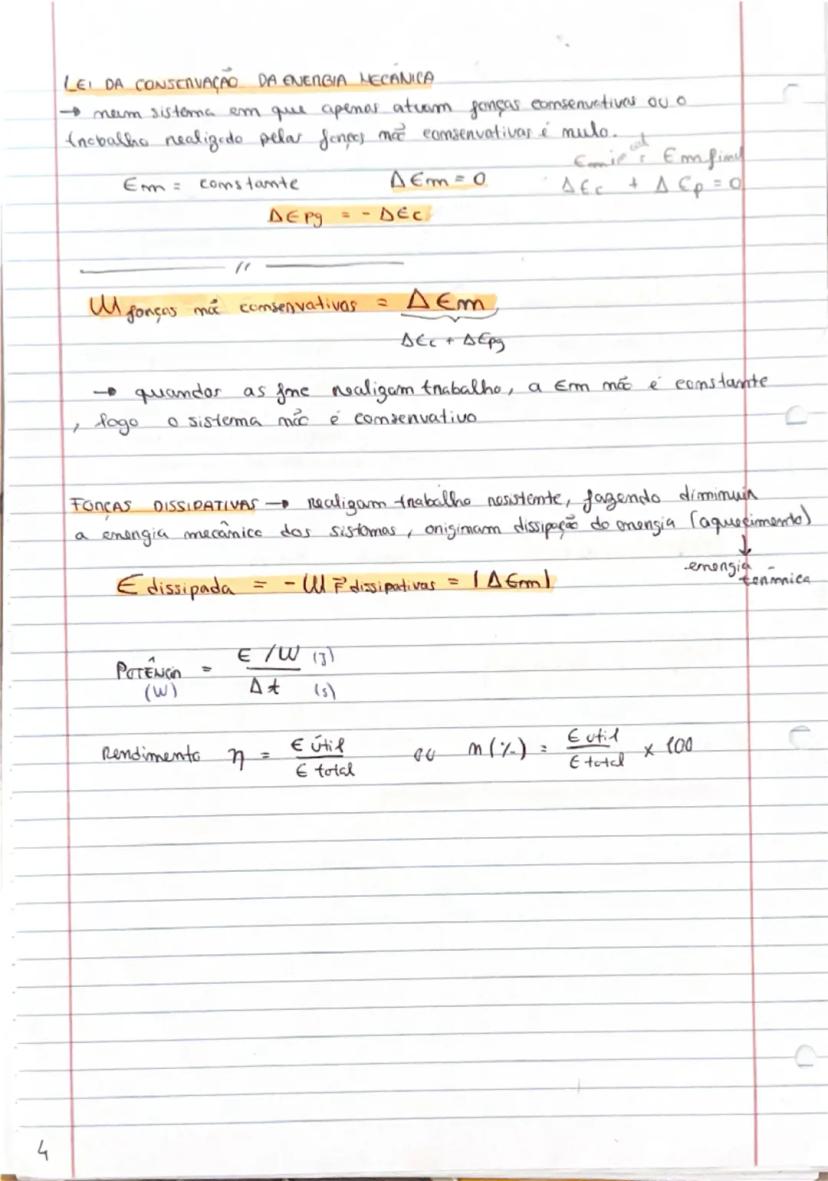 LEI DA CONSERVAÇÃO DA ENERGIA MECÂNICA
→ num sistema em que apenas atuam forças conservativas ou o
trabalho realizado pelas forças não conservativas é nulo.
Em inicial = Em final
Em = constante ΔEm = 0 ΔEc + ΔEp = 0
ΔEpg = - ΔEc
//
W forças não conservativas = ΔEm
ΔEc + ΔEpg
→ quandos as fnc realizam trabalho, a Em não é constante
, logo o sistema não é conservativo
FORÇAS DISSIPATIVAS → realizam trabalho resistente, fazendo diminuir
a energia mecânica dos sistemas, originam dissipação de energia (aquecimento)
↓
energia
térmica
E dissipada = - W F⃗ dissipativas = |ΔEm|
POTÊNCIA = E /W (J)
(W) Δt (s)
Rendimento η = E útil / E total ou η(%) = E útil / E total × 100
4